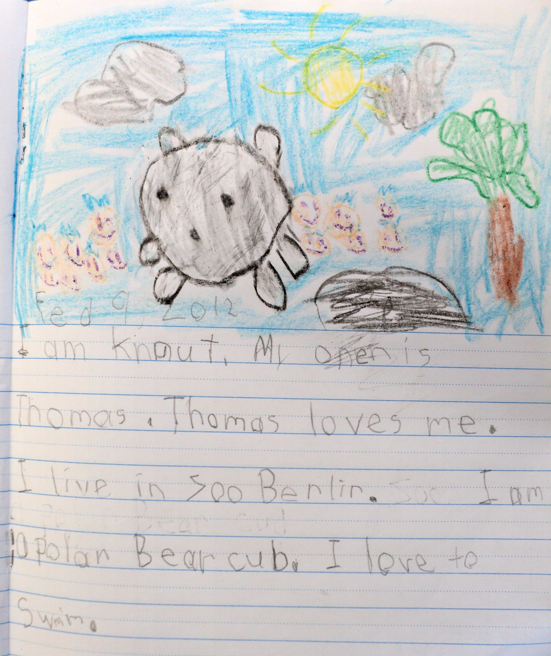 Fed 9 2012
I am Knout. My onen is
Thomas. Thomas loves me.
I live in Soo Berlin. Soo I am
a polar Bear cub. I love to
Swim.